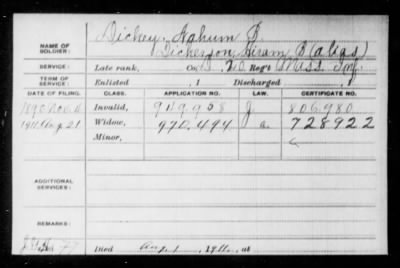 Dickey, Nahum P.
NAME OF SOLDIER: Dickerson, Hiram B (alias)
SERVICE: Late rank, Co. B, 20 Reg't Miss. Inf.
TERM OF SERVICE: Enlisted , 1 Discharged , 1
DATE OF FILING. CLASS. APPLICATION NO. LAW. CERTIFICATE NO.
1890 Nov. Invalid, 949.958 J 806.980
1911 Aug. 21 Widow, 970.494 a. 728922
Minor,
ADDITIONAL SERVICES:
REMARKS:
Died Aug 1911, at